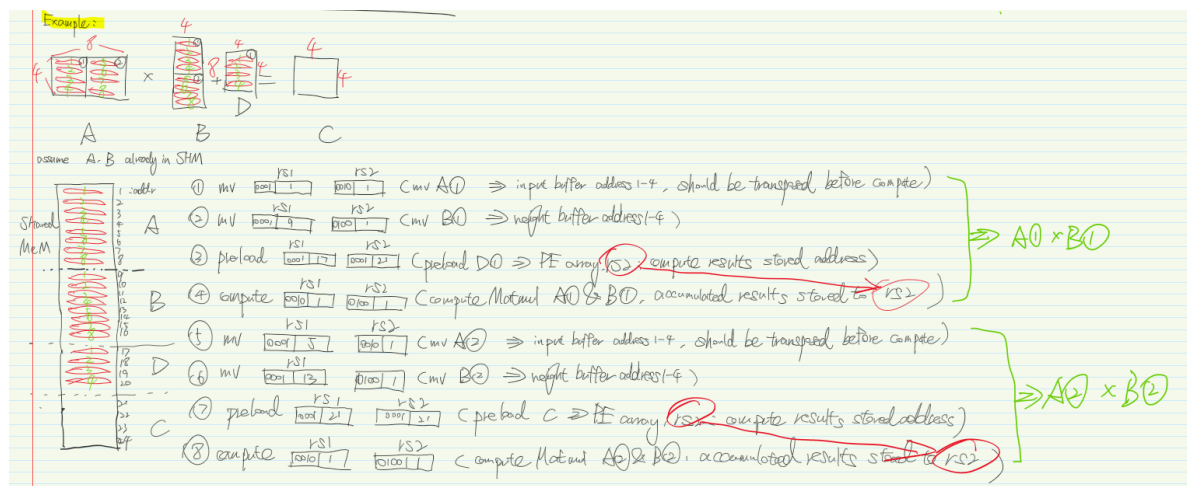 Example:
8
4
4
8
4
4
4
4
① ②
×
①
②
+
①
=
D
A B C
assume A.B already in SHM
Shared
MeM
addr
1
2
3
4
5
6
7
8
9
10
11
12
13
14
15
16
17
18
19
20
21
22
23
24
A
B
D
C
rs1 rs2
① mv 0001 1 0010 1 (mv A① ⇒ input buffer address 1-4, should be transposed before compute)
rs1 rs2
② mv 0001 9 0100 1 (mv B① ⇒ weight buffer address 1-4)
rs1 rs2
③ preload 0001 17 0001 21 (preload D① ⇒ PE array, rs2: compute results stored address)
rs1 rs2
④ compute 0010 1 0100 1 (compute Matmul A① & B①, accumulated results stored to rs2)
⇒ A① × B①
rs1 rs2
⑤ mv 0001 5 0010 1 (mv A② ⇒ input buffer address 1-4, should be transposed before compute)
rs1 rs2
⑥ mv 0001 13 0100 1 (mv B② ⇒ weight buffer address 1-4)
rs1 rs2
⑦ preload 0001 21 0001 21 (preload C ⇒ PE array, rs2: compute results stored address)
rs1 rs2
⑧ compute 0010 1 0100 1 (compute Matmul A② & B②, accumulated results stored to rs2)
⇒ A② × B②